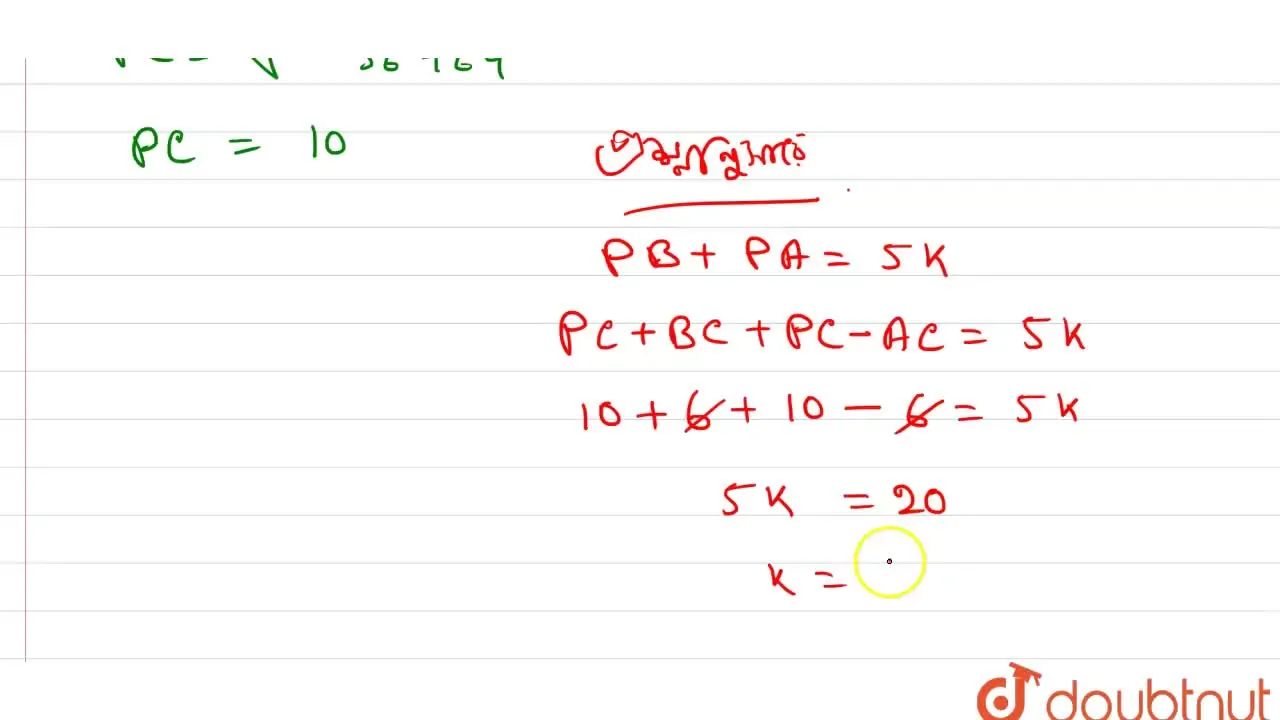 PC = 10
PB + PA = 5K
PC + BC + PC - AC = 5K
10 + 6 + 10 - 6 = 5K
5K = 20
K =
doubtnut